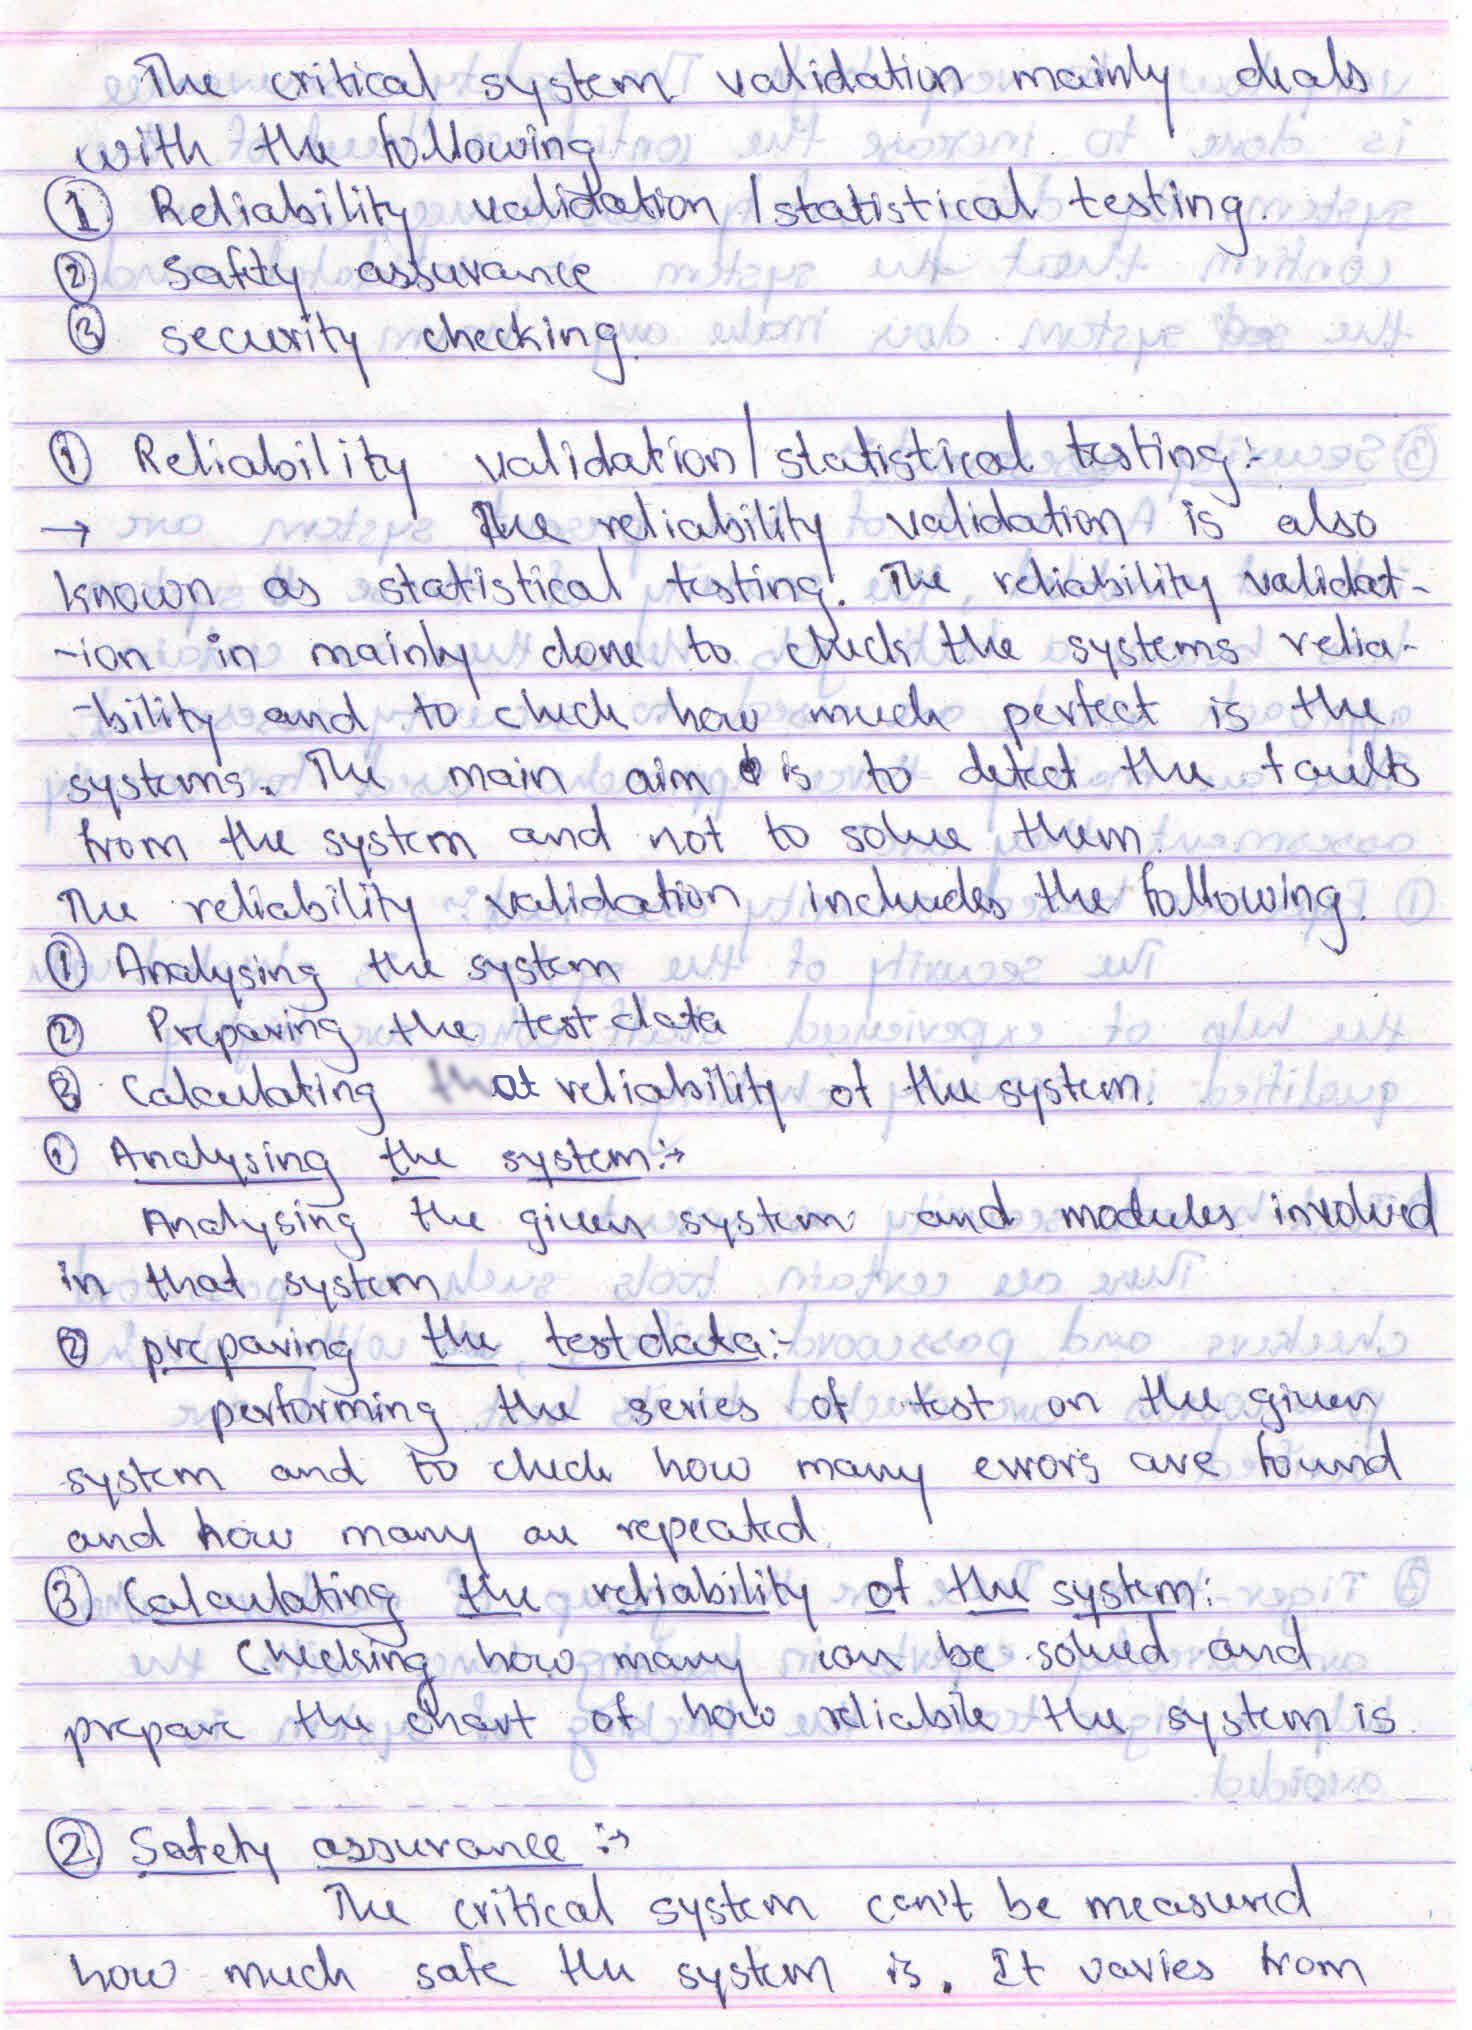 The critical system validation mainly deals
with the following
① Reliability validation / statistical testing.
② Safety assurance
③ security checking.
① Reliability validation / statistical testing:-
→ The reliability validation is also
known as statistical testing. The reliability validat-
-ion in mainly done to check the systems relia-
-bility and to check how much perfect is the
systems. The main aim is to detect the faults
from the system and not to solve them.
The reliability validation includes the following.
① Analysing the system
② Preparing the test data
③ Calculating that reliability of the system.
① Analysing the system:→
Analysing the given system and modules involved
in that system
② preparing the test data:-
performing the series of test on the given
system and to check how many errors are found
and how many are repeated.
③ Calculating the reliability of the system:
Checking how many can be solved and
prepare the chart of how reliabile the system is.
② Safety assurance :→
The critical system can't be measured
how much safe the system is. It varies from